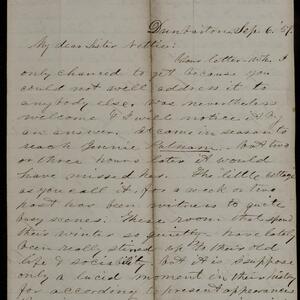 Dunbarton Sep. 6. '59.
My dear Sister Nettie:
Your letter which I
only chanced to get because you
could not well address it to
anybody else, was nevertheless
welcome & I will notice it by
an answer. It came in season to
reach Jennie Putnam. But two
or three hours later it would
have missed her. The little cottage
as you call it, for a week or two
past has been witness to quite
busy scenes. These rooms that spend
their winter so quietly have lately
been really stirred up to their old
life & sociability but it is I suppose
only a lucid moment in their history
for according to present appearances